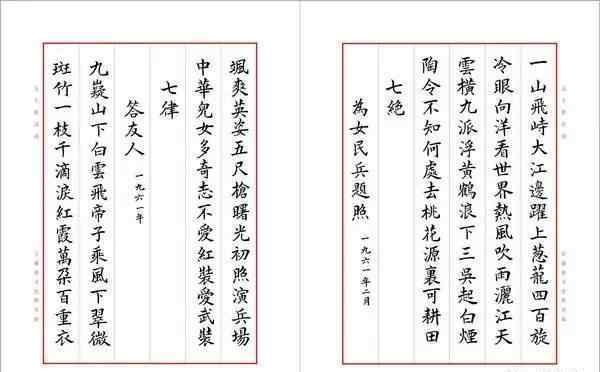 一山飛峙大江邊躍上葱蘢四百旋
冷眼向洋看世界熱風吹雨灑江天
雲橫九派浮黃鶴浪下三吳起白煙
陶令不知何處去桃花源裏可耕田
七絕
為女民兵題照 一九六一年二月
颯爽英姿五尺槍曙光初照演兵場
中華兒女多奇志不愛紅裝愛武裝
七律
答友人 一九六一年
九嶷山下白雲飛帝子乘風下翠微
斑竹一枝千滴淚紅霞萬朶百重衣